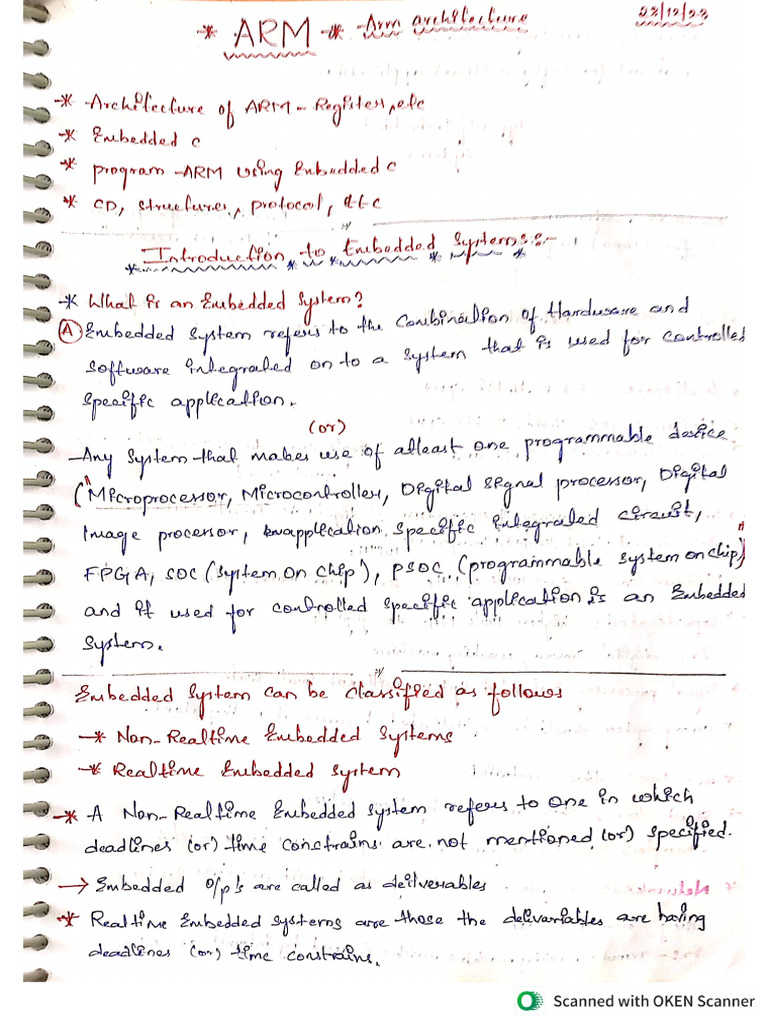 * ARM * Arm architecture 28/12/23
* Architecture of ARM - Registers, etc
* Embedded c
* program ARM using Embedded c
* CD, structures, protocol, etc
Introduction to Embedded Systems:-
* What is an Embedded System?
(A) Embedded System refers to the Combination of Hardware and
software integrated on to a system that is used for controlled
specific application.
(or)
Any System that makes use of atleast one programmable device
("Microprocessor, Microcontroller, Digital signal processor, Digital
image processor, application specific integrated circuit,
FPGA, SOC (System on chip), PSOC (programmable system on chip)"
and it used for controlled specific application is an Embedded
System.
Embedded System can be classified as follows
* Non-Realtime Embedded Systems
* Realtime Embedded System
* A Non-Realtime Embedded system refers to one in which
deadlines (or) time constrains are not mentioned (or) specified.
→ Embedded o/p's are called as deliverables
* Realtime Embedded systems are those the delivariables are having
deadlines (or) time constrains.
Scanned with OKEN Scanner